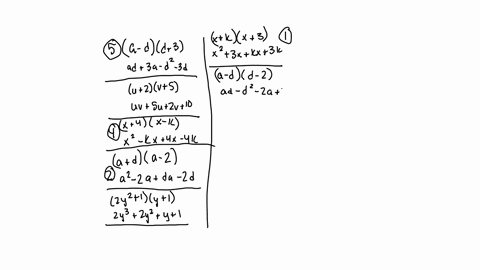 ⑤ (a-d)(d+3)
ad+3a-d²-3d
(u+2)(v+5)
uv+5u+2v+10
④ (x+4)(x-k)
x²-kx+4x-4k
(a+d)(a-2)
② a²-2a+da-2d
(2y²+1)(y+1)
2y³+2y²+y+1
(x+k)(x+3) ①
x²+3x+kx+3k
(a-d)(d-2)
ad-d²-2a+